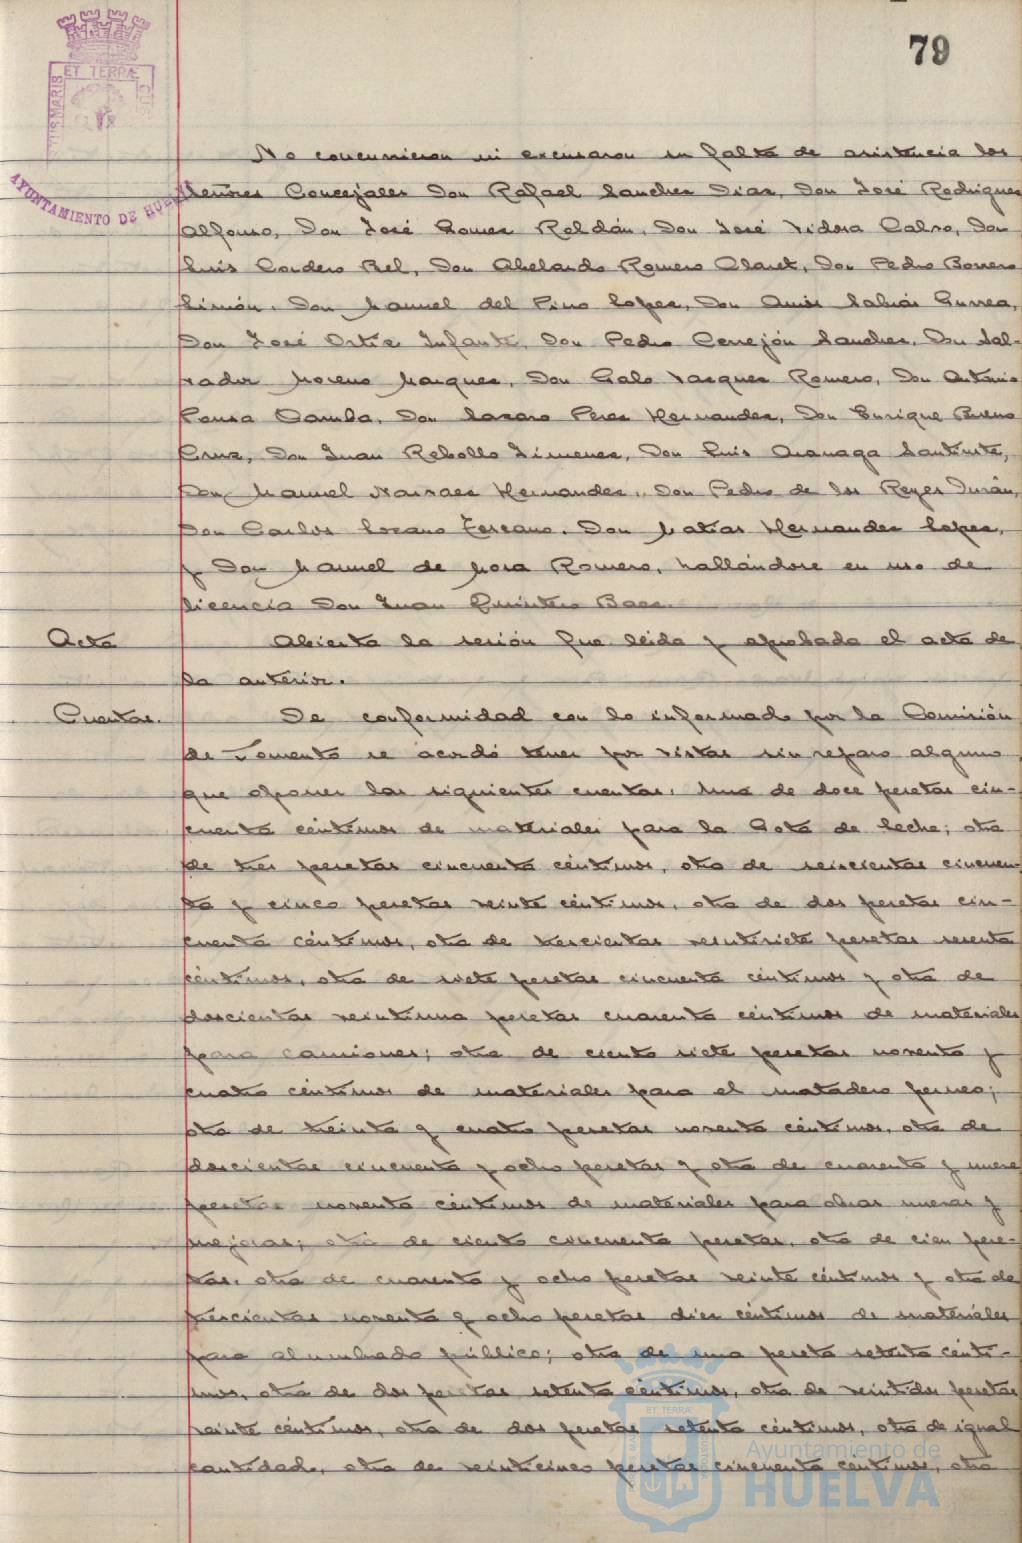 79
ET TERRÆ
AYUNTAMIENTO DE HUELVA
No concurrieron ni excusaron su falta de asistencia los
señores Concejales Don Rafael Sanchez Diaz, Don José Rodriguez
Alfonso, Don José Gomez Roldán, Don José Vidosa Calvo, Don
Luis Cordero Bel, Don Abelardo Romero Claret, Don Pedro Borrero
Limón, Don Manuel del Pino Lopez, Don Amós Sabrás Gurrea,
Don José Ortiz Infante, Don Pedro Cerrejón Sanchez, Don Sal-
vador Moreno Marquez, Don Galo Vazquez Romero, Don Antonio
Pousa Camba, Don Lazaro Perez Hernandez, Don Enrique Bueno
Cruz, Don Juan Rebollo Jimenez, Don Luis
Don Manuel Narvaez Hernandez, Don Pedro de los Reyes Durán,
Don Carlos Lozano Don Matias Hernandez Lopez,
y Don Manuel de Mora Romero, hallándose en uso de
licencia Don Juan Quintero Baez.
Acta
Abierta la sesión fue leida y aprobada el acta de
la anterior.
Cuentas.
De conformidad con lo informado por la Comisión
de Fomento se acordó tener por vistas sin reparo alguno
que oponer las siguientes cuentas. Una de doce pesetas cin-
cuenta céntimos de materiales para la Gota de leche; otra
de tres pesetas cincuenta céntimos, otra de seiscientas cincuen-
ta y cinco pesetas veinte céntimos, otra de dos pesetas cin-
cuenta céntimos, otra de trescientas veintisiete pesetas sesenta
céntimos, otra de siete pesetas cincuenta céntimos y otra de
doscientas veintiuna pesetas cuarenta céntimos de materiales
para camiones; otra de ciento siete pesetas noventa y
cuatro céntimos de materiales para el matadero
otra de treinta y cuatro pesetas noventa céntimos, otra de
doscientas cincuenta y ocho pesetas y otra de cuarenta y nueve
pesetas noventa céntimos de materiales para obras nuevas y
mejoras; otra de ciento cincuenta pesetas, otra de cien pese-
tas, otra de cuarenta y ocho pesetas veinte céntimos y otra de
trescientas noventa y ocho pesetas diez céntimos de materiales
para alumbrado público; otra de una peseta setenta cénti-
mos, otra de dos pesetas setenta céntimos, otra de veintidos pesetas
veinte céntimos, otra de dos pesetas setenta céntimos, otra de igual
cantidad, otra de veinticinco pesetas cincuenta céntimos, otra
ET TERRÆ
Ayuntamiento de
HUELVA